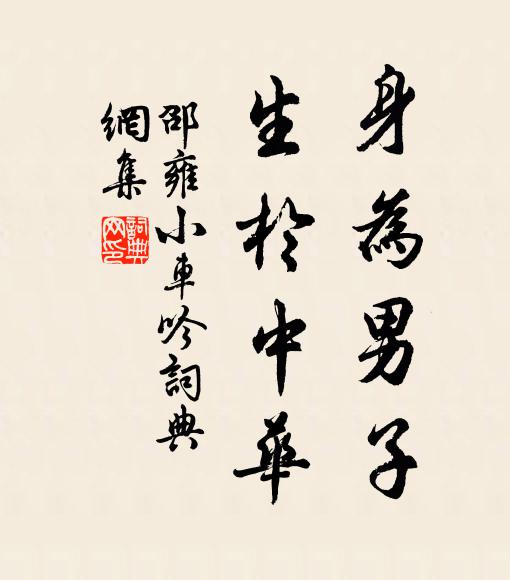 身為男子
生於中華
邵雍小車吟詞典
網集
詞典
网印